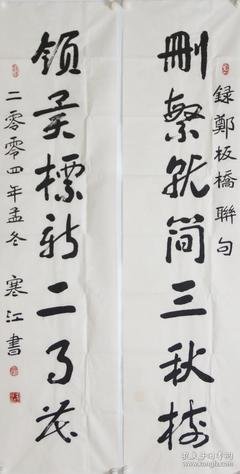 録鄭板橋聯句
刪繁就簡三秋樹
領異標新二月花
二零零四年孟冬 寒江書